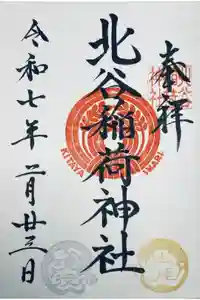 奉拝
北谷稲荷神社
KITAYA INARI
令和七年二月廿三日